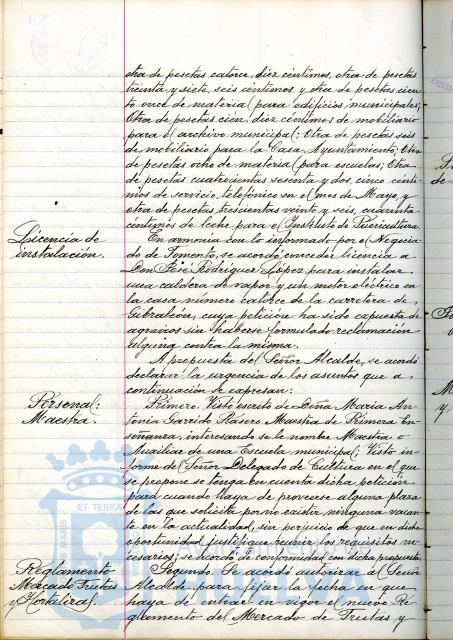 otra de pesetas catorce, diez céntimos, otra de pesetas
treinta y siete, seis céntimos y otra de pesetas cien
to once de material para edificios municipales;
Otra de pesetas cien, diez céntimos de mobiliario
para el archivo municipal; Otra de pesetas seis
de mobiliario para la Casa Ayuntamiento; Otra
de pesetas ocho de material para escuelas; Otra
de pesetas cuatrocientas sesenta y dos, cinco cénti-
mos de servicio telefónico en el mes de Mayo, y
otra de pesetas trescientas veinte y seis, cuarenta
céntimos de leche para el Instituto de Puericultura.
Licencia de
instalación.
En armonía con lo informado por el Negocia-
do de Fomento, se acordó conceder licencia a
Don José Rodríguez López para instalar
una caldera de vapor y un motor eléctrico en
la casa número catorce de la carretera de
Gibraleón, cuya petición ha sido expuesta de
agravios sin haberse formulado reclamación
alguna contra la misma.
A propuesta del Señor Alcalde, se acordó
declarar la urgencia de los asuntos que a
continuación se expresan:
Personal:
Maestra.
Primero. Visto escrito de Doña Maria An-
tonia Garrido Rasero Maestra de Primera En-
señanza, interesando se le nombre Maestra o
Auxiliar de una Escuela municipal; Visto in-
forme del Señor Delegado de Cultura en el que
se propone se tenga en cuenta dicha petición
para cuando haya de proveerse alguna plaza
de las que solicita por no existir ninguna vacan
te en la actualidad, sin perjuicio de que en dicha
oportunidad justifique reunir los requisitos ne-
cesarios; se acordó de conformidad con dicha propuesta.
Reglamento
Mercado Frutas
y Hortalizas.
Segundo. Se acordó autorizar al Señor
Alcalde para fijar la fecha en que
haya de entrar en vigor el nuevo Re-
glamento del Mercado de Frutas y
ET TERRA